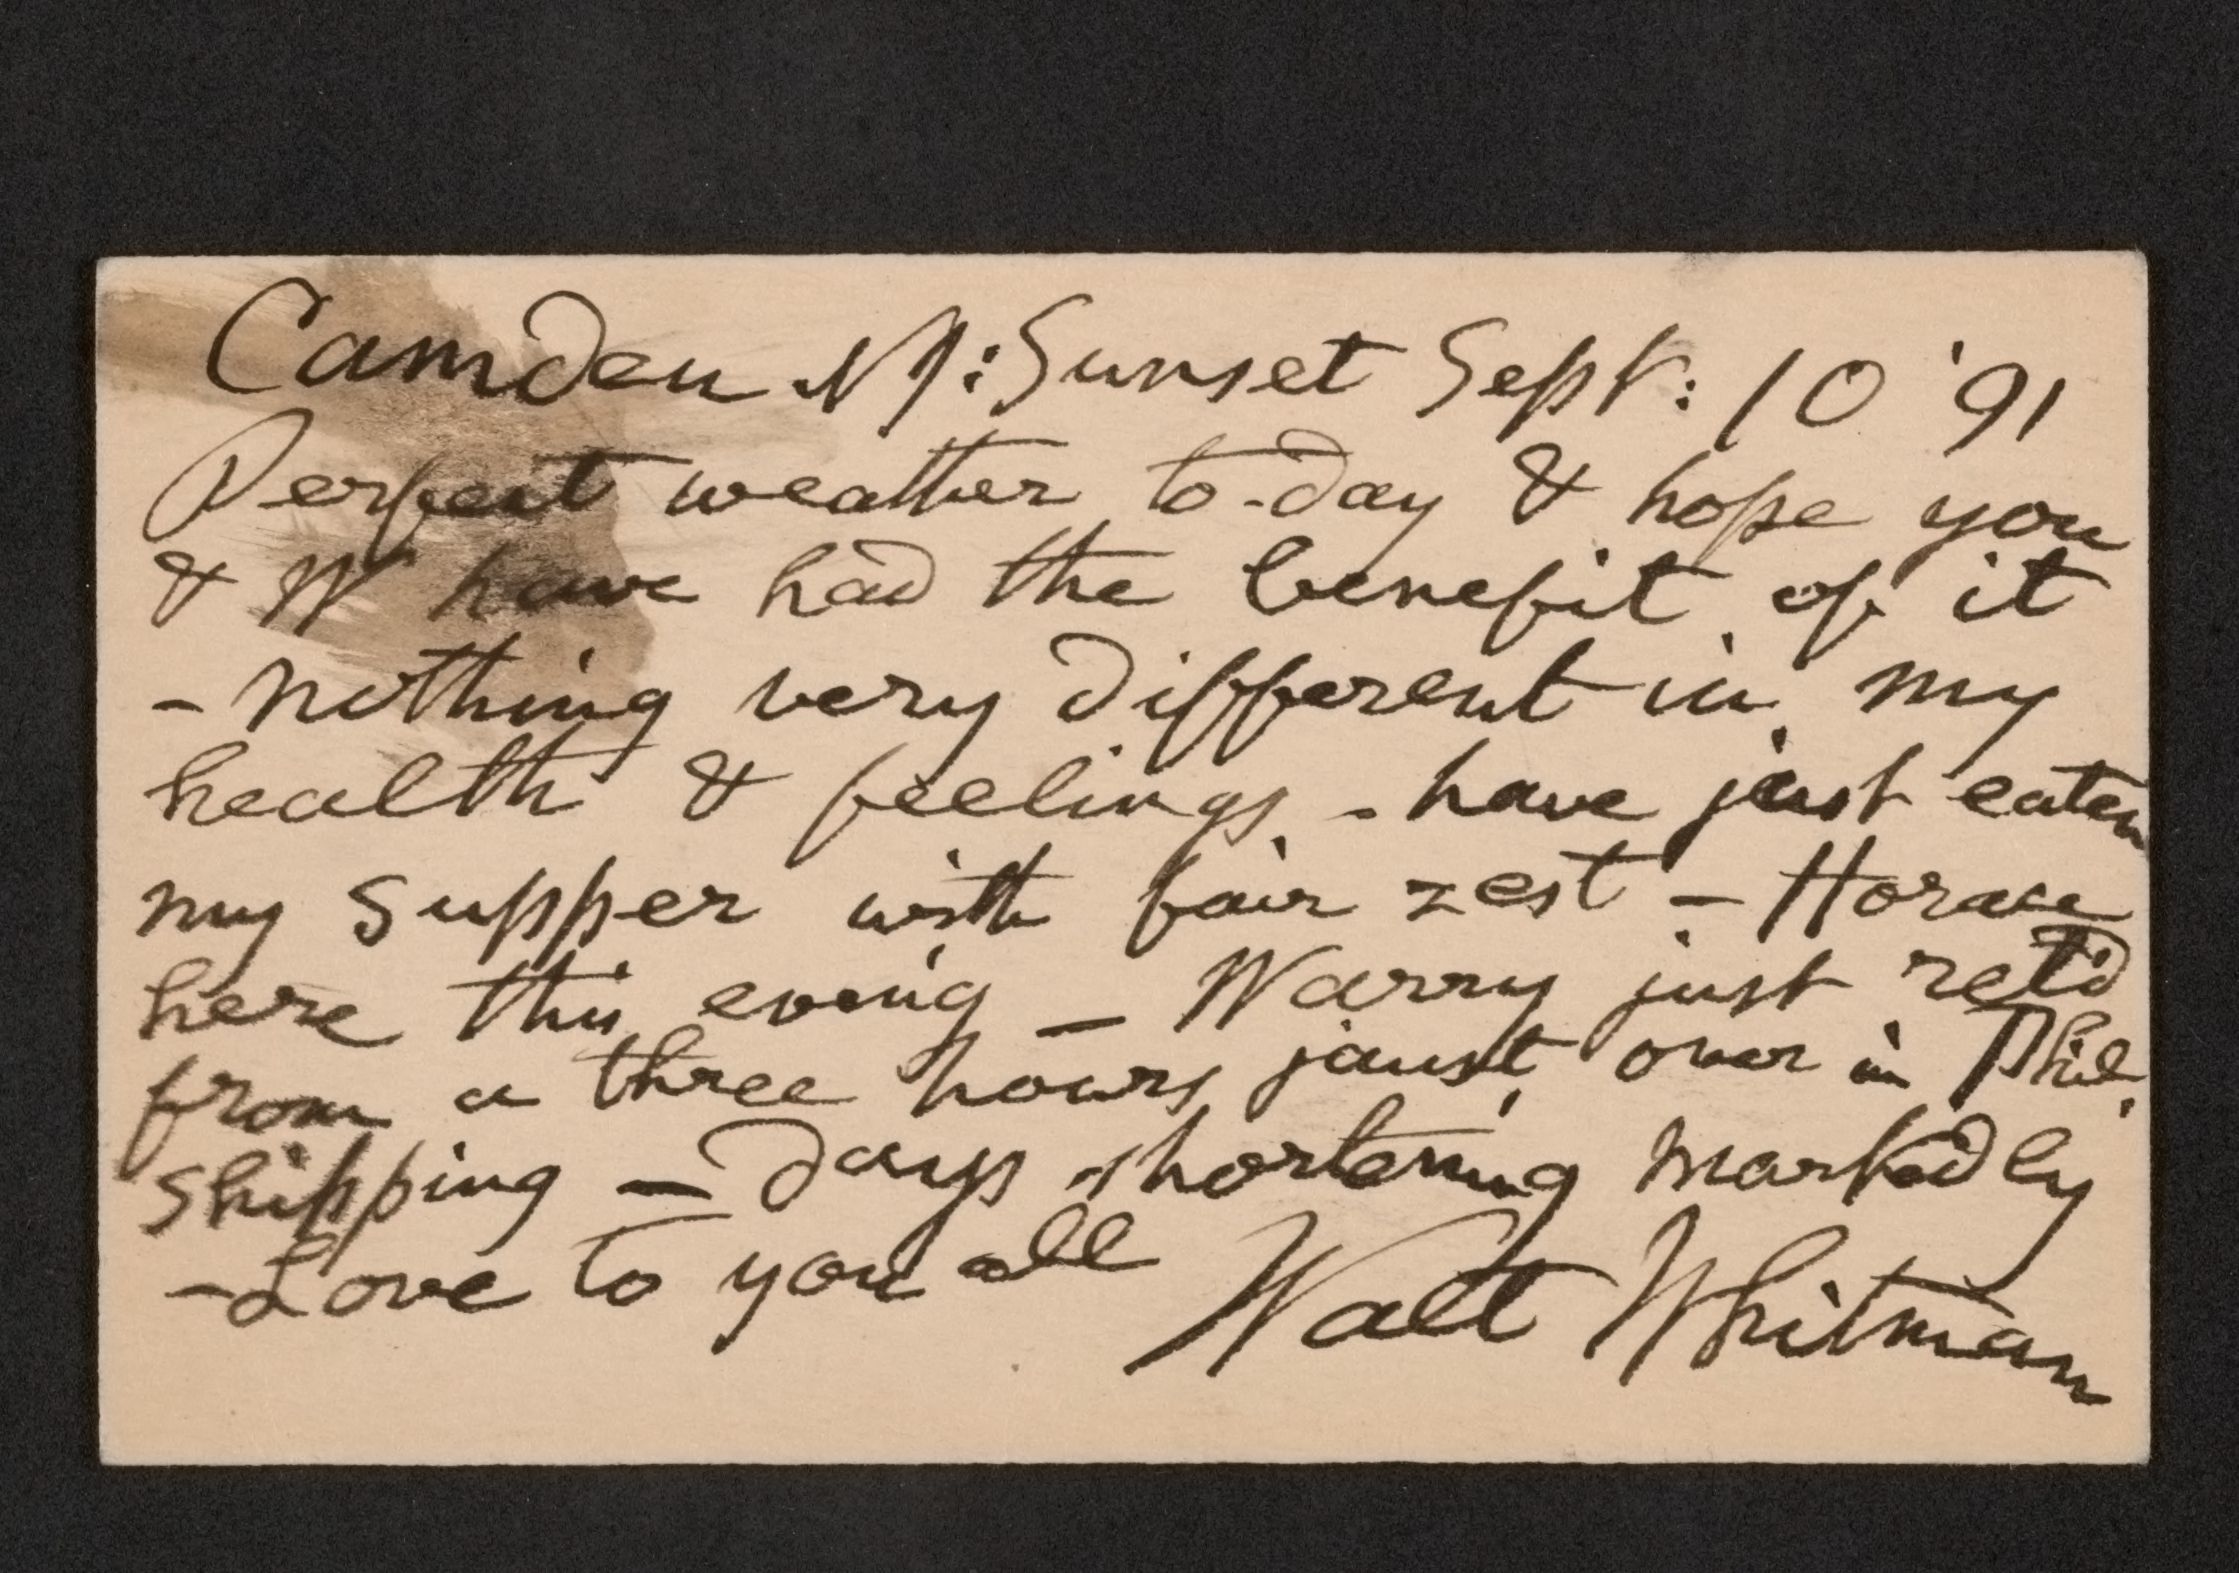 Camden NJ: Sunset Sept: 10 '91
Perfect weather to-day & hope you
& W have had the benefit of it
- nothing very different in my
health & feelings - have just eaten
my supper with fair zest - Horace
here this evn'g - Warry just ret'd
from a three hours jaunt over in Phil.
shipping - days shortening markedly
- Love to you all Walt Whitman